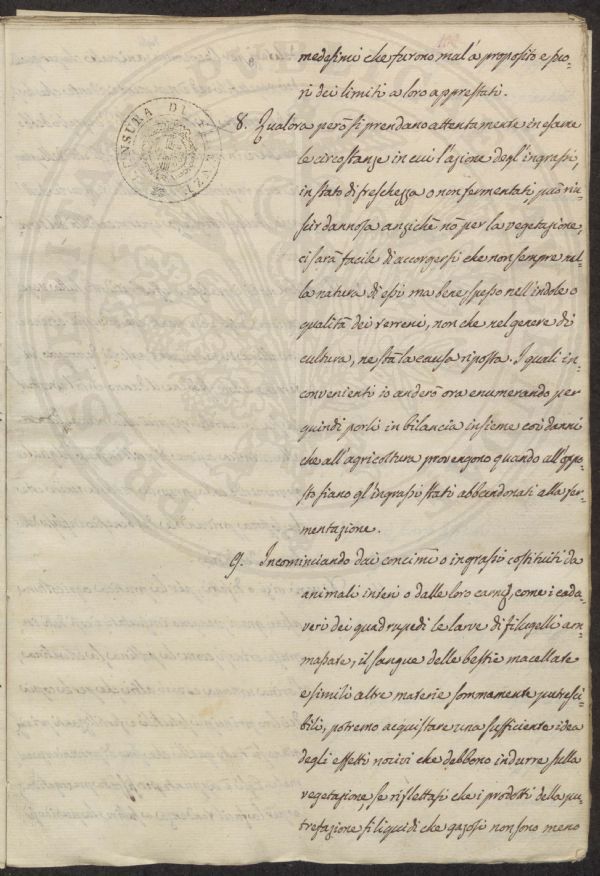 medesimi che furono mal'a proposito e fuo-
ri dei limiti a loro apprestati.
8. Qualora però si prendano attentamente in esame
le circostanze in cui l'azione degl'ingrassi,
in stato di freschezza o non fermentati, può riu-
scir dannosa anzichè nò per la vegetazione,
ci sarà facile di accorgersi che non sempre nel-
la natura di essi ma bene spesso nell'indole o
qualità dei terreni, non che nel genere di
cultura, ne stà la causa riposta. I quali in-
convenienti io anderò ora enumerando per
quindi porli in bilancia insieme coi danni
che all'agricoltura provengono quando all'oppo-
sto siano gl'ingrassi stati abbandonati alla fer-
mentazione.
9. Incominciando dai concimi o ingrassi costituiti da
animali interi o dalle loro carni, come i cada-
veri dei quadrupedi le larve di filugelli am-
massate, il sangue delle bestie macellate
e simili altre materie sommamente putresci-
bili, potremo acquistare una sufficiente idea
degli effetti nocivi che debbono indurre sulla
vegetazione, se riflettasi che i prodotti della pu-
trefazione sì liquidi che gazosi non sono meno